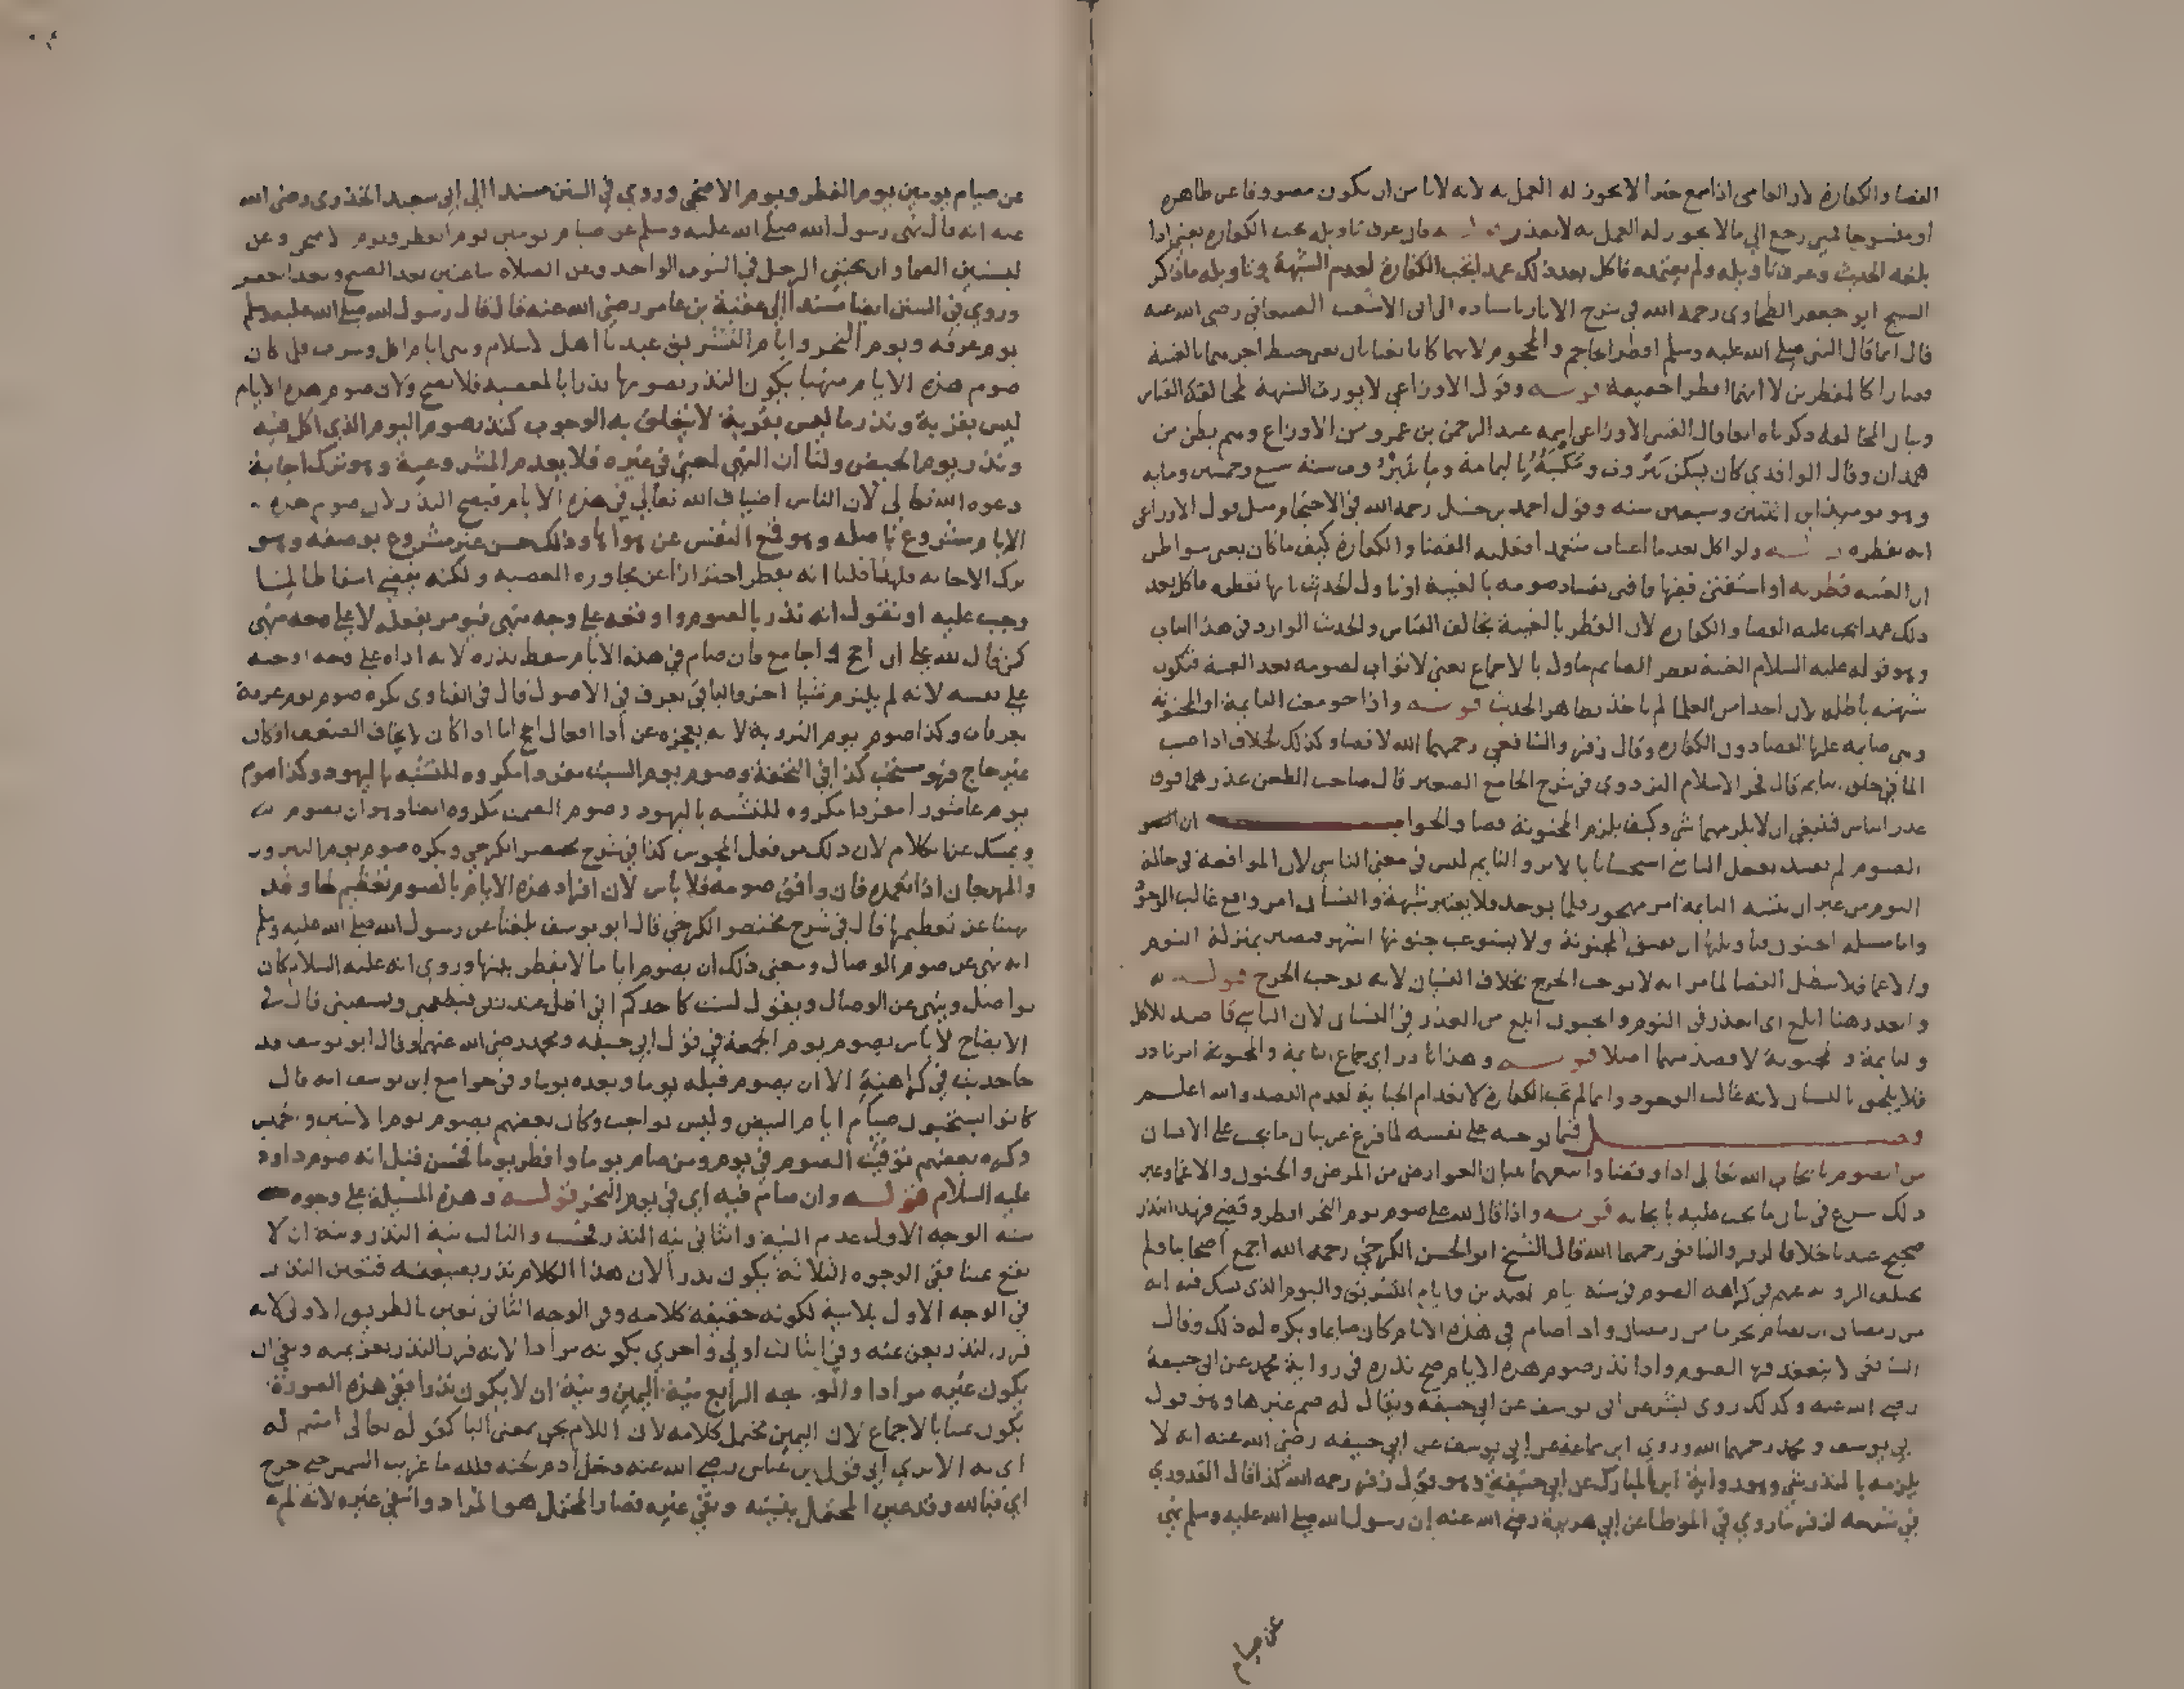 القضا والكفارة لان العامى اذا سمع خبرا لا يجوز له العمل به لانه لا يا من ان يكون مصروفا عن ظاهره
او منسوخا فمتى رجع الى ما لا يجوز له العمل به لا يعذر قوله فان عرف تاويله يجب الكفارة يعنى اذا
بلغه الحديث وعرف تاويله ولم يعتمده فاكل بعد ذلك عمدا يجب الكفارة لعدم الشبهة وتاويله ما ذكر
الشيخ ابو جعفر الطحاوى رحمه الله فى شرح الاثار باسناده الى ابى الاشعث الصنعانى رضى الله عنه
قال انما قال النبى صلى الله عليه وسلم افطر الحاجم والمحجوم لانهما كانا يغتابان يعنى حبط اجرهما بالغيبة
فصارا كالمفطرين لا انهما افطرا حقيقة قوله وقول الاوزاعي لا يورث الشبهة لمخالفته القياس
وبيان المخالفة ذكرناه انفا وقال القتبى الاوزاعى اسمه عبد الرحمن بن عمرو من الاوزاع وهم بطن من
همدان وقال الواقدي كان يسكن بيروت ومكتبه باليمامة ومات سنة سبع وخمسين ومايه
وهو يوميذ ابن اثنتين وسبعين سنه وقول احمد بن حنبل رحمه الله فى الاحتجام مثل قول الاوزاعى
انه يفطره قوله ولو اكل بعد ما اغتاب متعمدا فعليه القضا والكفارة كيف ما كان يعنى سوا ظن
ان الغيبه فطرته او استفتى فقيها فافتى بفساد صومه بالغيبة او تاول الحديث بانها تفطره فاكل بعد
ذلك عمدا يجب عليه القضا والكفارة لان الفطر بالغيبة يخالف القياس والحديث الوارد فى هذا الباب
وهو قوله عليه السلام الغيبة تفطر الصايم ماول بالاجماع يعنى لا ثواب لصومه بعد الغيبة فتكون
شبهته باطله لان احدا من العلما لم ياخذ بظاهر الحديث قوله واذا جومعت النايمة او المجنونة
وهى صايمه عليها القضا دون الكفارة وقال زفر والشافعي رحمهما الله لا قضا وكذلك الخلاف اذا صب
الما فى حلق نايم قال فخر الاسلام البزدوى فى شرح الجامع الصغير قال صاحب الطعن عذرهما فوق
عذر الناس فينبغى ان لا يلزمهما شى وكيف يلزم المجنونة قضا والجواب ان
الصوم لم يفسد بفعل الناسى استحسانا بالاثر والنايم ليس فى معنى الناسى لان المواقعة فى حالة
النوم من غير ان تنتبه النايمة امر مهجور قلما يوجد فلا يعتبر شبهة والنسيان امر واقع غالب الوجود
واما مسله المجنون فتاويلها ان تفيق المجنونة ولا يستوعب جنونها الشهر فيصير بمنزلة النوم
والاغما فلا يبطل القضا لما مر انه لا يوجب الحرج بخلاف النسيان لانه يوجب الحرج قوله
والعذر هنا ابلغ اى العذر فى النوم والجنون ابلغ من العذر فى النسيان لان الناسى قاصد للاكل
والنايمة والمجنونة لا قصد منهما اصلا قوله وهذا نادر اى جماع النايمة والمجنونة امر نادر
فلا يلحق بالنسيان لانه غالب الوجود وانما لم تجب الكفارة لانعدام الجناية لعدم القصد والله اعلم
فصل فيما يوجبه على نفسه لما فرغ عن بيان ما يجب على الانسان
من الصوم بايجاب الله تعالى ادا وقضا واتبعهما بيان العوارض من المرض والجنون والاغما وغير
ذلك شرع فى بيان ما يجب عليه بايجابه قوله واذا قال لله على صوم يوم النحر افطر وقضى فهذا النذر
صحيح عندنا خلافا لزفر والشافعى رحمهما الله قال الشيخ ابو الحسن الكرخي رحمه الله اجمع اصحابنا ولم
يختلف الرواية عنهم فى كراهة الصوم فى ستة ايام العيدين وايام التشريق واليوم الذى يشك فيه انه
من رمضان ان يصام تحريا من رمضان واذا صام فى هذه الايام كان صايما ويكره له ذلك وقال
الشافعى لا ينعقد فيها الصوم واذا نذر صوم هذه الايام صح نذره فى رواية محمد عن ابى حنيفة
رضى الله عنه وكذلك روى بشر عن ابى يوسف عن ابى حنيفه ويقال له صم غيرها وهو قول
ابى يوسف ومحمد رحمهما الله وروى ابن سماعة عن ابى يوسف عن ابى حنيفه رضى الله عنه انه لا
يلزمه بالنذر شى وهو رواية ابن المبارك عن ابى حنيفة وهو قول زفر رحمه الله كذا قال القدوري
فى شرحه لزفر ما روي في الموطا عن ابى هريرة رضى الله عنه ان رسول الله صلى الله عليه وسلم نهى
عن صيام
عن صيام يومين يوم الفطر ويوم الاضحى وروي فى السنن مسندا الى ابى سعيد الخدرى رضى الله
عنه انه قال نهى رسول الله صلى الله عليه وسلم عن صيام يومين يوم الفطر ويوم الاضحى وعن
لبستين الصما وان يحتبى الرجل فى الثوب الواحد وعن الصلاة ساعتين بعد الصبح وبعد العصر
وروي فى السنن ايضا مسندا الى عقبة بن عامر رضى الله عنه قال قال رسول الله صلى الله عليه وسلم
يوم عرفه ويوم النحر وايام التشريق عيدنا اهل الاسلام وهى ايام اكل وشرب فلما كان
صوم هذه الايام منهيا يكون النذر بصومها نذرا بالمعصية فلا يصح ولان صوم هذه الايام
ليس بقربة ونذر ما ليس بقربة لا يتعلق به الوجوب كنذر صوم اليوم الذي اكل فيه
ونذر يوم الحيض ولنا ان النهى لمعنى فى غيره فلا يعدم المشروعية وهو ترك اجابة
دعوة الله تعالى لان الناس اضياف الله تعالى في هذه الايام فيصح النذر لان صوم هذه
الايام مشروع باصله وهو قمع النفس عن هواها وذلك حسن غير مشروع بوصفه وهو
ترك الاجابه فلهذا قلنا انه يفطر احترازا عن مجاورة المعصية ولكنه يقضى اسقاطا لما
وجب عليه او نقول انه نذر بالصوم واوقعه على وجه منهى فيومر بفعله لا على وجه منهى
كمن قال لله على ان احج فان صام في هذه الايام سقط نذره لانه اداه على وجه اوجبه
على نفسه لانه لم يلتزم شيا اخر والباقى يعرف فى الاصول قال فى الفتاوى يكره صوم يوم عرفة
بعرفات وكذا صوم يوم التروية لانه يعجزه عن ادا افعال الحج اما اذا كان لا يخاف الضعف او كان
غير حاج فهو مستحب كذا فى التحفة وصوم يوم السبت مفردا مكروه للتشبه باليهود وكذا صوم
يوم عاشورا مفردا مكروه للتشبه باليهود وصوم الصمت مكروه ايضا وهو ان يصوم
ويمسك عن الكلام لان ذلك من فعل المجوس كذا فى شرح مختصر الكرخى ويكره صوم يوم النيروز
والمهرجان اذا تعمده فان وافق صومه فلا باس لان افراد هذه الايام بالصوم تعظيم لها وقد
نهينا عن تعظيمها قال فى شرح مختصر الكرخي قال ابو يوسف بلغنا عن رسول الله صلى الله عليه وسلم
انه نهى عن صوم الوصال ومعنى ذلك ان يصوم اياما لا يفطر بينها وروى انه عليه السلام كان
يواصل وينهى عن الوصال ويقول لست كاحدكم انى اظل عند ربى فيطعمنى ويسقينى قال فى
الايضاح لا باس بصوم يوم الجمعة في قول ابى حنيفه ومحمد رضى الله عنهما وقال ابو يوسف قد
جا حديث فى كراهية الا ان يصوم قبله يوما وبعده يوما وفى جوامع ابى يوسف انه قال
كانوا يستحبون صيام ايام البيض وليس بواجب وكان بعضهم يصوم يوم الاثنين والخميس
وكره بعضهم توقيت الصوم فى يوم ومن صام يوما وافطر يوما فحسن قيل انه صوم داود
عليه السلام قوله وان صام فيه اى فى يوم النحر قوله وهذه المسيلة على وجوه
ستة الوجه الاول عدم النية والثانى نية النذر فحسب والثالث نية النذر ونية ان لا
يقع يمينا ففى الوجوه الثلاثة يكون نذرا لان هذا الكلام نذر بصيغته فتعين النذر
فى الوجه الاول بلا نية لكونه حقيقة كلامه وفى الوجه الثانى تعين بالطريق الاولى لانه
قرر النذر بعزيمته وفى الثالث اولى واحرى بكونه مرادا لانه قرر النذر بعزيمته ونفى ان
يكون غيره مرادا والوجه الرابع نية اليمين ونية ان لا يكون نذرا ففى هذه الصورة
يكون يمينا بالاجماع لان اليمين محتمل كلامه لان اللام تجى بمعنى البا كقوله تعالى امنتم له
اى به الا ترى الى قول ابن عباس رضى الله عنه دخل ادم الجنه فلله ما غربت الشمس حتى خرج
اى فبالله وقد عين المحتمل بنيته ونفى غيره فصار المحتمل هو المراد وانتفى غيره لانه لم